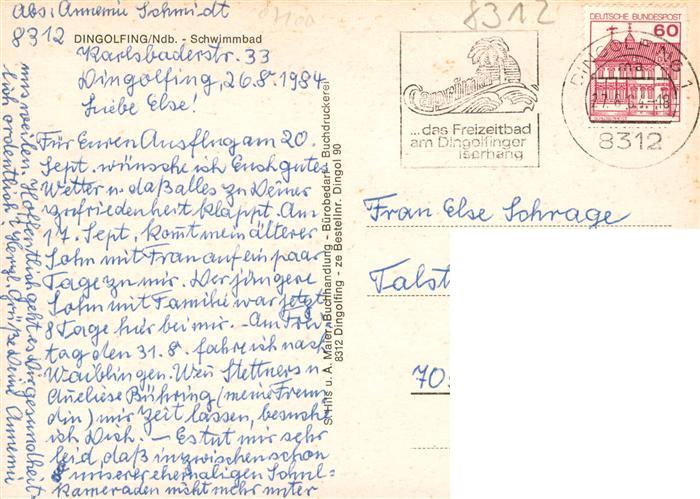 Abs: Annemie Schmidt
8312
DINGOLFING/Ndb. - Schwimmbad
Karlsbaderstr. 33
Dingolfing, 26.8.1984
Liebe Else!
Für Euren Ausflug am 20.
Sept. wünsche ich Euch gutes
Wetter u. daß alles zu Deiner
Zufriedenheit klappt. Am
17. Sept. kom̄t mein älterer
Sohn mit Frau auf ein paar
Tage zu mir. Der jüngere
Sohn mit Familie war jetzt
8 Tage hier bei mir. - Am Frei-
tag den 31.8. fahre ich nach
Waiblingen. Wen̄ Stettners u.
Aneliese Bühring (meine Freun
din) mir Zeit lassen, besuche
ich Dich. — Es tut mir sehr
leid, daß inzwischen schon
8 unserer ehemaligen Schul-
kameraden nicht mehr unter
uns weilen. Hoffentlich geht es Dir gesundheit-
lich ordentlich! Herzl. Grüße Deine Annemie
S. Hils u. A. Maier, Buchhandlung - Bürobedarf - Buchdruckerei
8312 Dingolfing - ze Bestellnr. Dingol 90
8312
Caprima
...das Freizeitbad
am Dingolfinger
Iserhang
DEUTSCHE BUNDESPOST
60
DINGOLFING 1
ma
27.8.84-18
8312
Frau Else Schrage
Talst
70